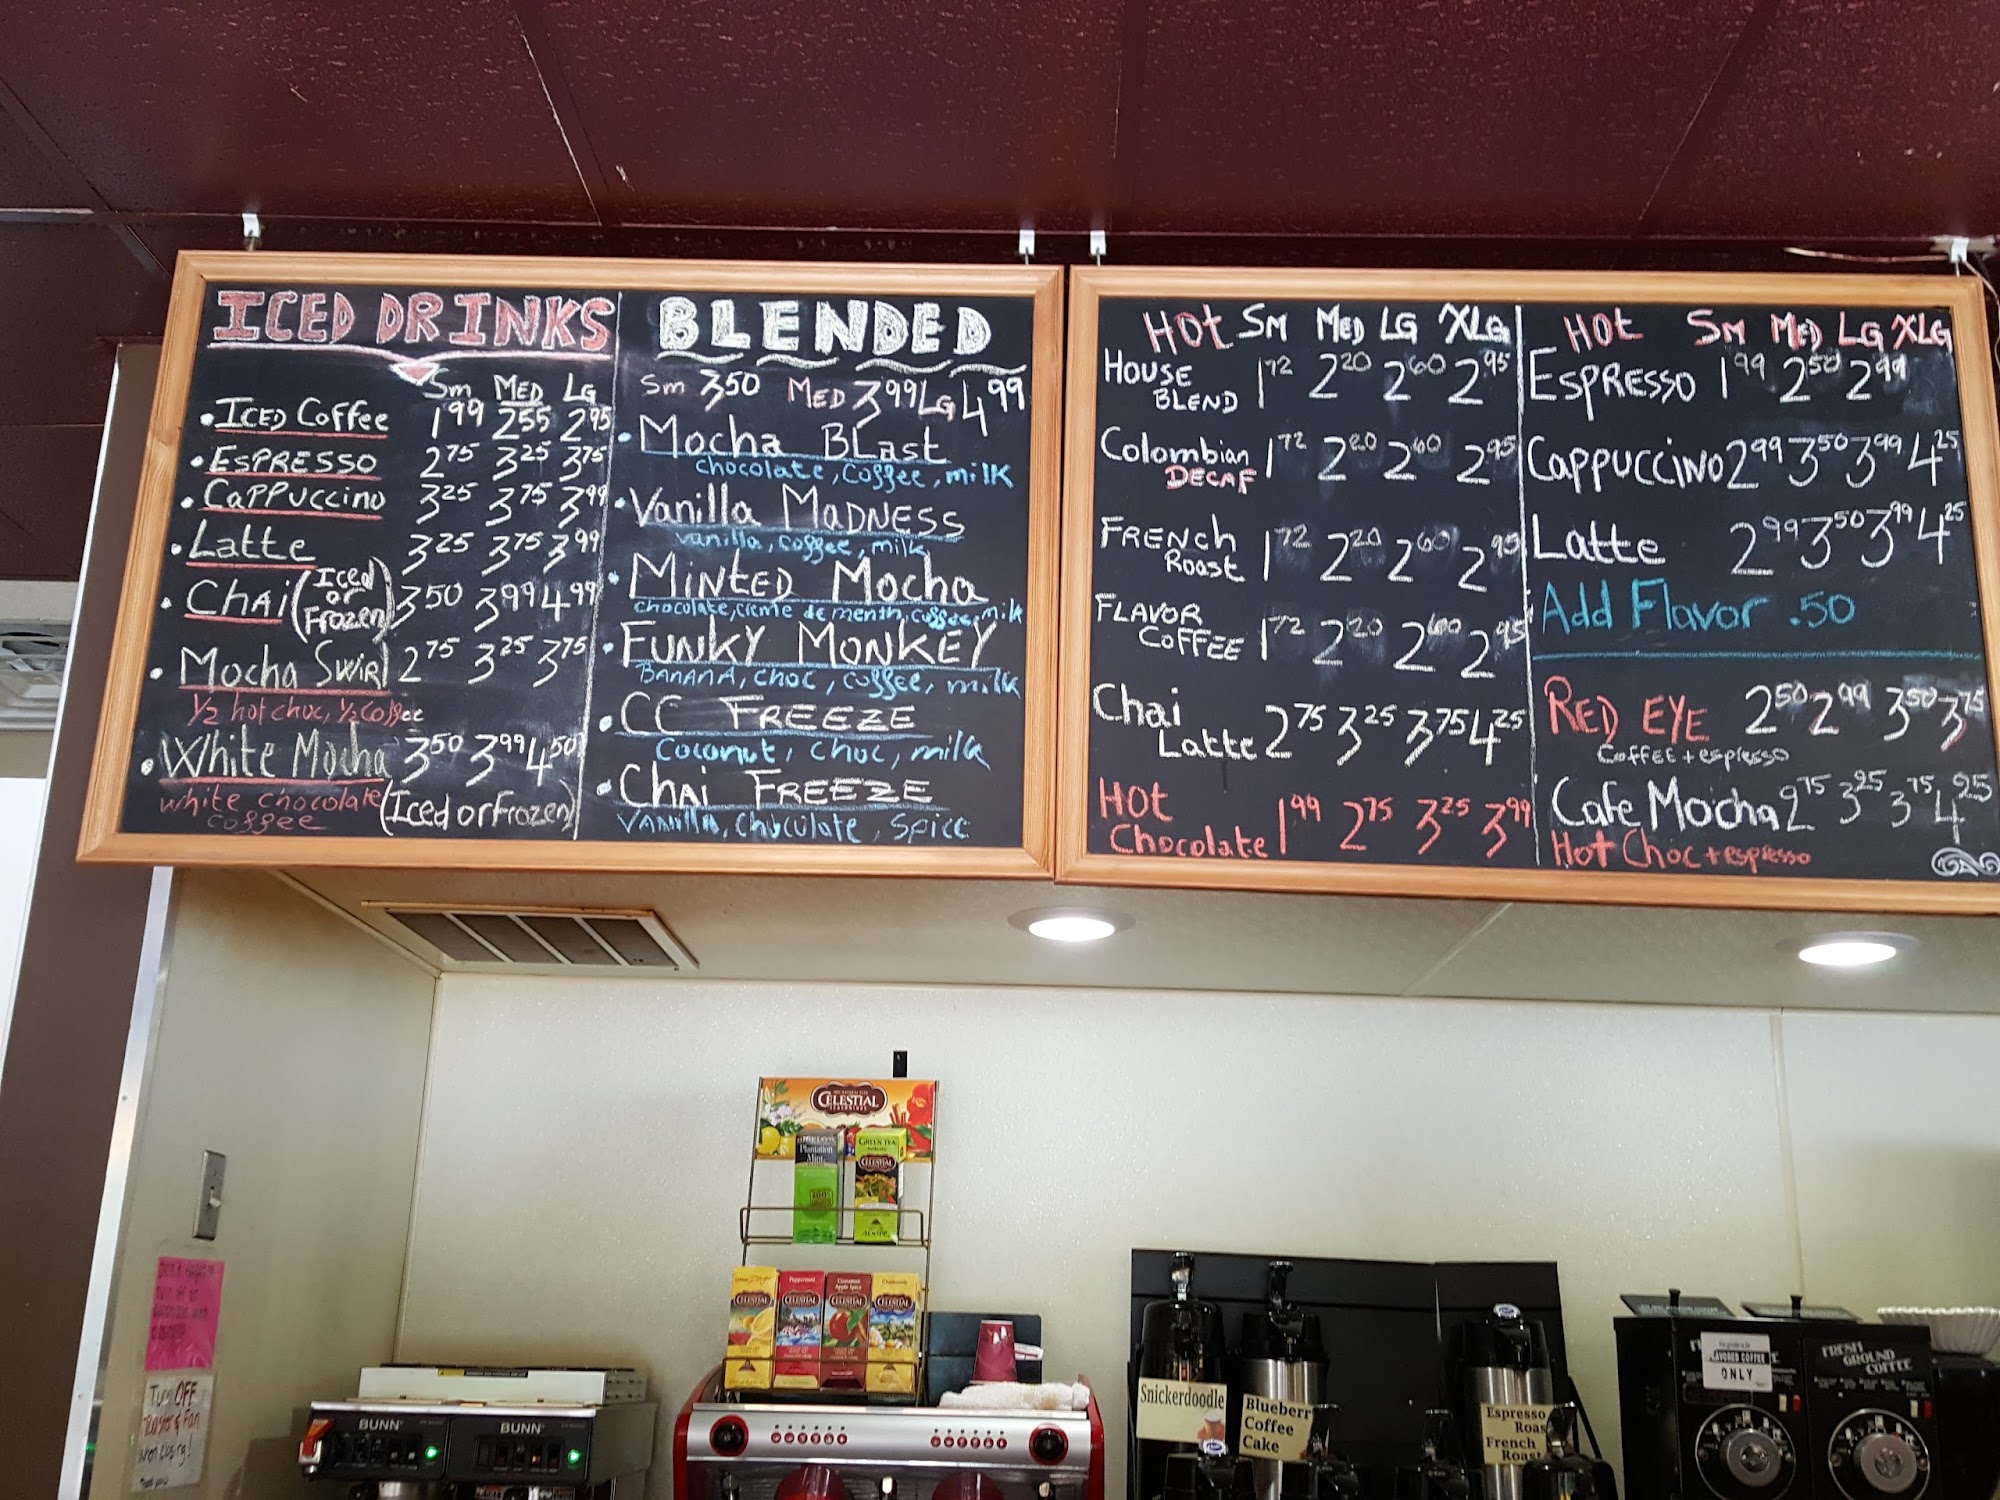 ICED DRINKS
Sm MED LG
• ICED Coffee 1.99 2.55 2.95
• ESPRESSO 2.75 3.25 3.75
• CAPPUCCINO 3.25 3.75 3.99
• Latte 3.25 3.75 3.99
• CHAI (Iced or Frozen) 3.50 3.99 4.99
• Mocha Swirl 2.75 3.25 3.75
1/2 hot choc, 1/2 coffee
• White Mocha 3.50 3.99 4.50
white chocolate coffee (Iced or Frozen)
BLENDED
Sm 3.50 MED 3.99 LG 4.99
• Mocha BLast
chocolate, coffee, milk
• Vanilla MADNESS
vanilla, coffee, milk
• MINTED Mocha
chocolate, creme de menth, coffee, milk
• FUNKY MONKEY
BANANA, choc, coffee, milk
• CC FREEZE
Coconut, choc, milk
• CHAI FREEZE
VANILLA, chocolate, spice
HOT Sm MED LG XLG
HOUSE BLEND 1.72 2.20 2.60 2.95
Colombian DECAF 1.72 2.20 2.60 2.95
FRENCH Roast 1.72 2.20 2.60 2.95
FLAVOR COFFEE 1.72 2.20 2.60 2.95
Chai Latte 2.75 3.25 3.75 4.25
HOT Chocolate 1.99 2.75 3.25 3.99
HOt Sm MED LG XLG
ESPRESSO 1.99 2.50 2.99
CAPPUCCINO 2.99 3.50 3.99 4.25
Latte 2.99 3.50 3.99 4.25
Add Flavor .50
RED EYE 2.50 2.99 3.50 3.75
COFFEE + espresso
Cafe Mocha 2.75 3.25 3.75 4.25
Hot Choc + espresso
CELESTIAL
Plantation
Mint
GREEN TEA
CELESTIAL
Lemon Zinger
CELESTIAL
Peppermint
CELESTIAL
Cinnamon
Apple Spice
CELESTIAL
Chamomile
CELESTIAL
Turn OFF
Toaster & Fan
when closing!
BUNN
BUNN
Snickerdoodle
Blueberry
Coffee
Cake
Espresso
Roast
French
Roast
FLAVORED COFFEE
ONLY
FRESH
GROUND
COFFEE